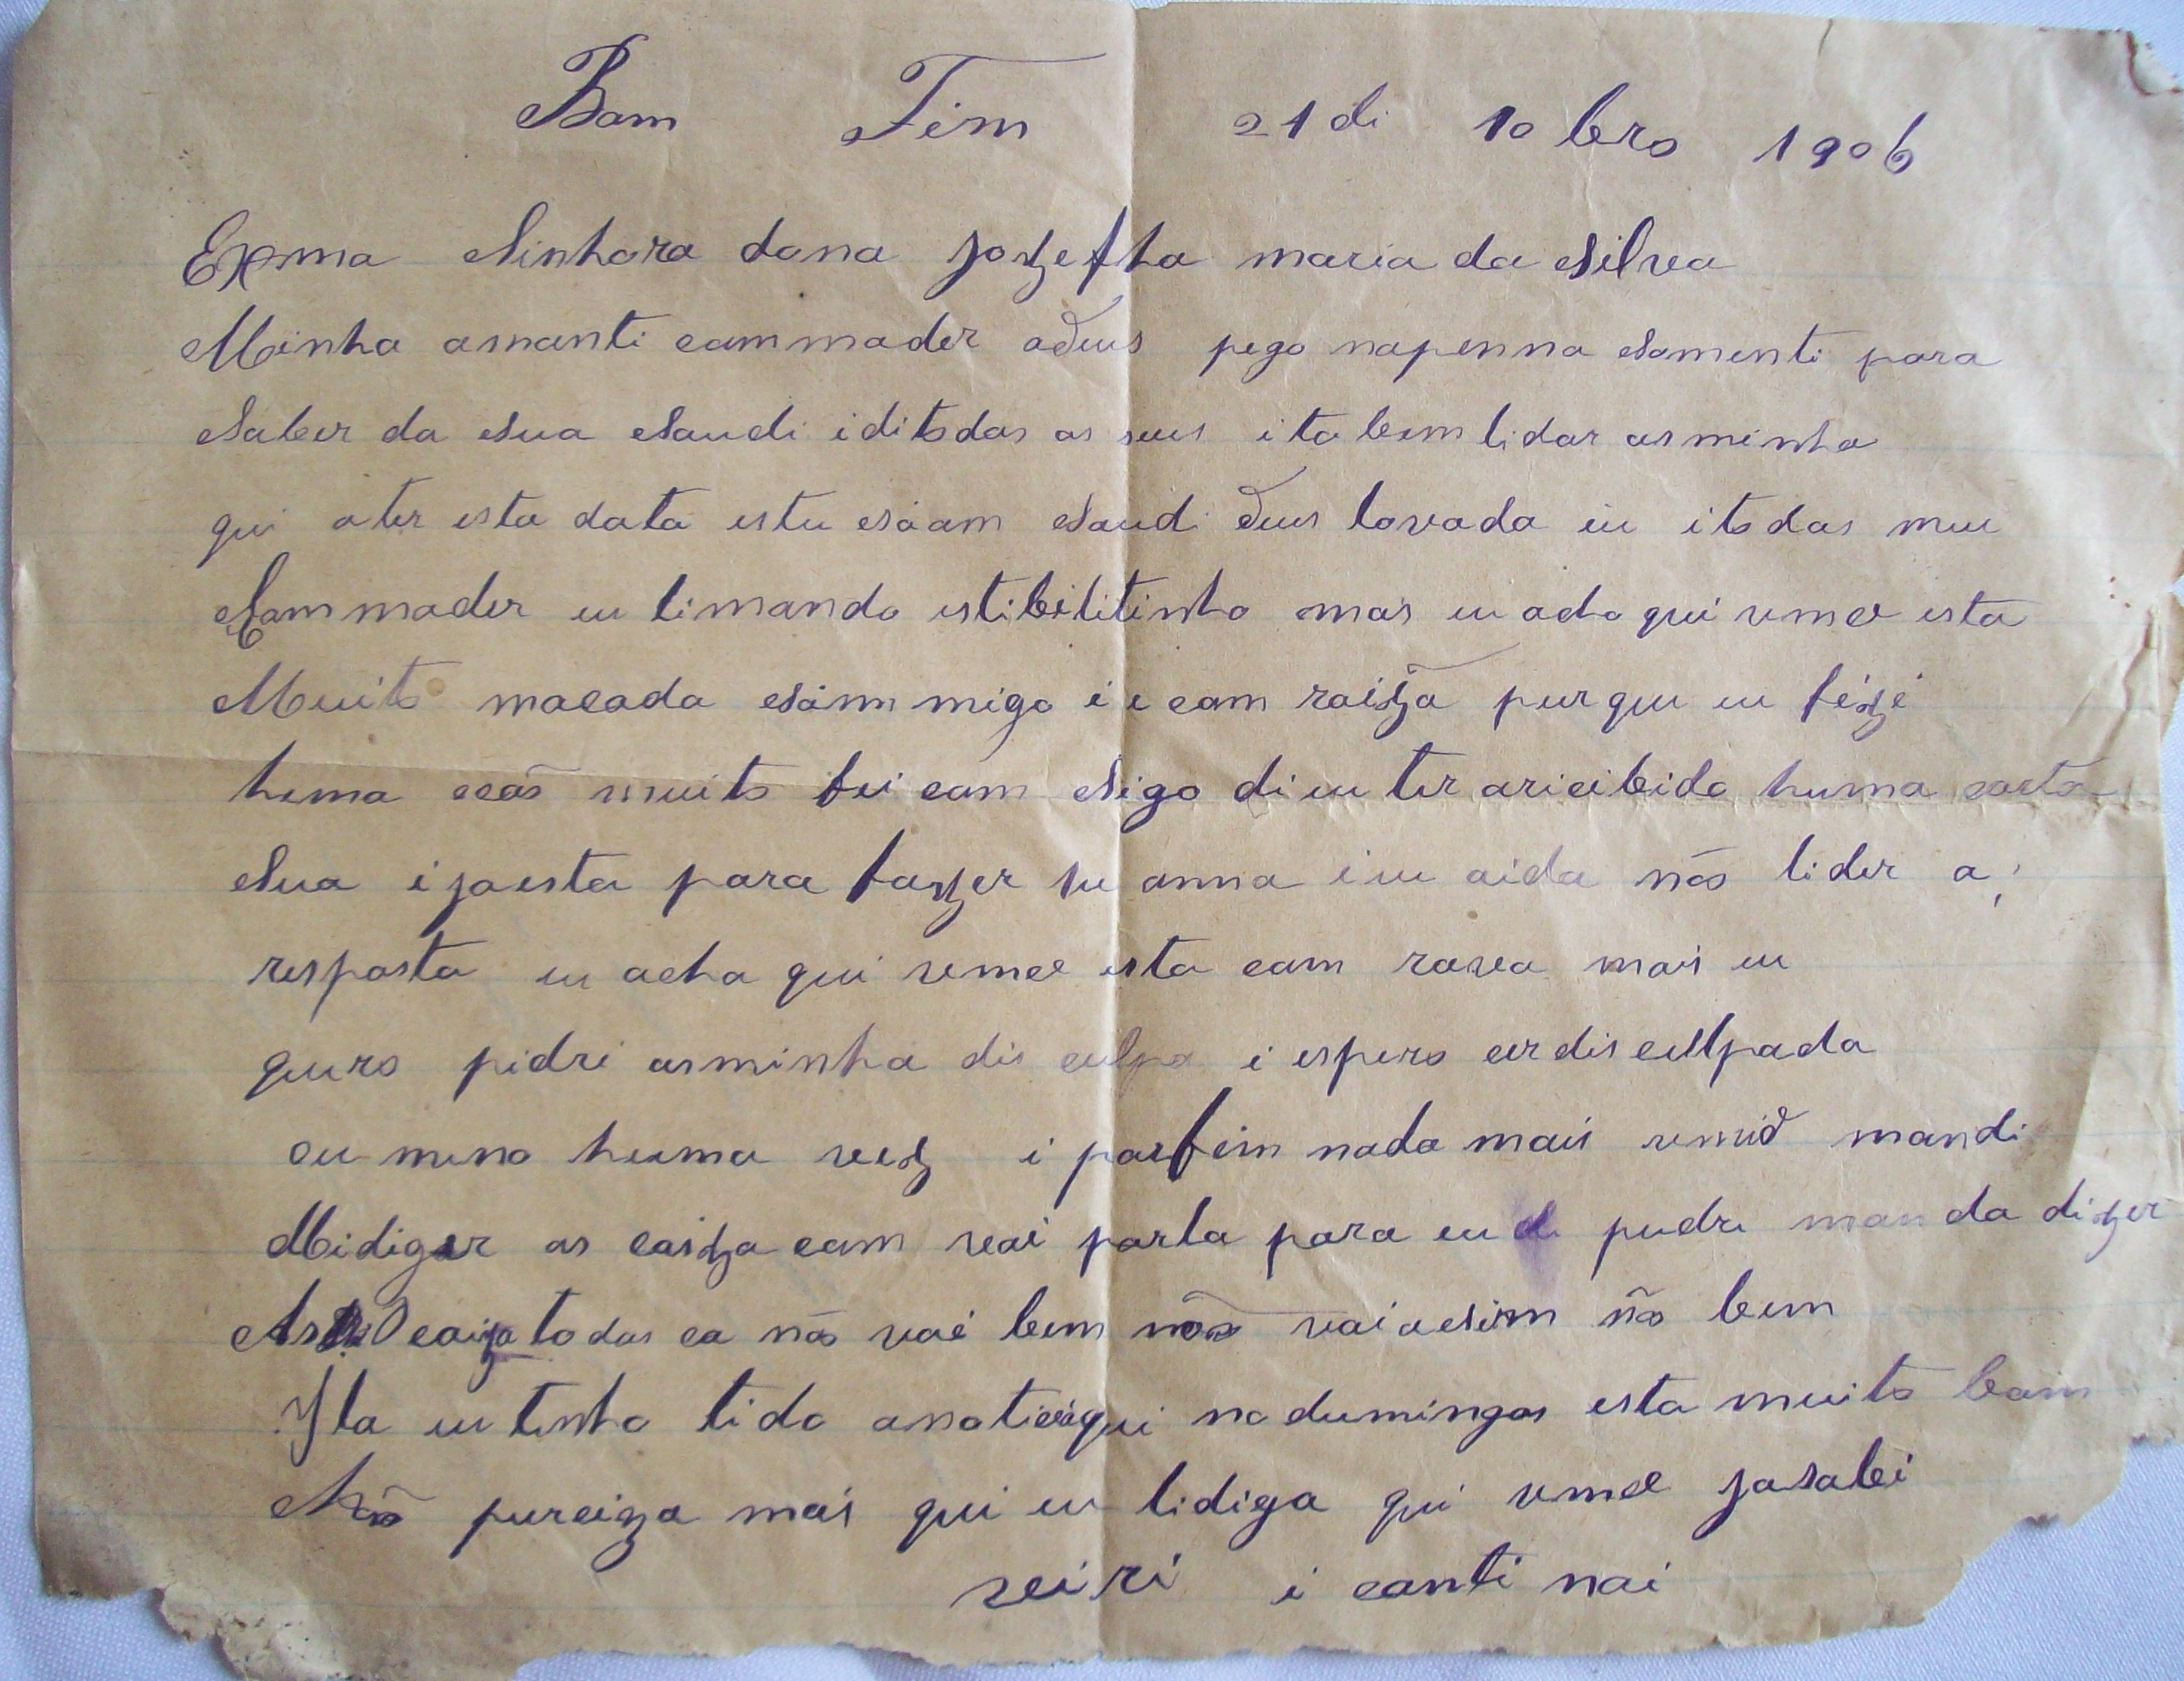 Bom Fim 21 di 10 bro 1906
Exma Sinhora dona Jozefha maria da Silva
Minha amanti commader adeus pego napenna somenti para
Saber da sua saudi i ditodos os seus i ta bem lidar as minha
qui ater esta data estu com saudi deus lovado eu i todos meu
Commader eu ti mando esti bilitinho mais eu acho qui vmce esta
Muito macada commigo i e com raizã purque eu fizi
huma muito fei com sigo di eu ter aricibido huma carta
Sua i ja esta para fazer hu anno i eu aida não ti der a
resposta eu acho qui vmce esta com rava mais eu
quero pidri as minha dis culpa i espero cer dis culpada
eu meno huma vez i por fim nada mais vmce mandi
Midizer as coiza com vai por la para eu pudre manda dizer
coiza todos ca não vai bem não vai acim não bem
Ila eu tinho tido a noticia qui no dumingos esta muito bom
Não pureciza mais qui eu ti diga qui vmce ja sabi
veiri i conti nai